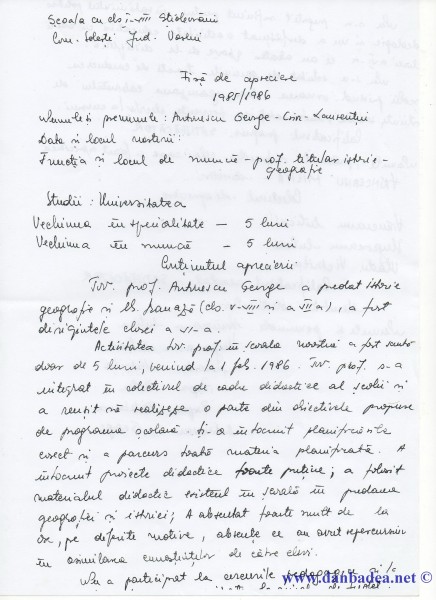 Școala cu cls. I-VIII Știoborăni
Com. Solești Jud. Vaslui
Fișă de apreciere
1985/1986
Numele și prenumele: Antonescu George-Crin-Laurențiu
Data și locul nașterii:
Funcția și locul de muncă - prof. titular istorie -
geografie
Studii: Universitatea
Vechimea în specialitate - 5 luni
Vechimea în muncă - 5 luni
Conținutul aprecierii
Tov. prof. Antonescu George a predat istorie
geografie și lb. franceză (cls. V-VIII și a VII a), a fost
dirigintele clasei a VI-a.
Activitatea tov. prof. în școala noastră a fost
doar de 5 luni, venind la 1 feb. 1986. Tov. prof. s-a
integrat în colectivul de cadre didactice al școlii și
a reușit să realizeze o parte din obiectivele propuse
de programa școlară. Și-a întocmit planificările
corect și a parcurs toată materia planificată. A
întocmit proiecte didactice foarte puține; a folosit
materialul didactic existent în școală în predarea
geografiei și istoriei; A absentat foarte mult de la
ore, pe diferite motive, absențe ce au avut repercursiuni
în asimilarea cunoștințelor de către elevi.
Nu a participat la cercurile pedagogice și
www.danbadea.net